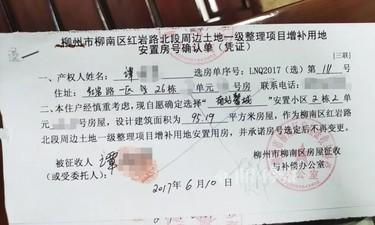 柳州市柳南区红岩路北段周边土地一级整理项目增补用地
安置房号确认单（凭证）
[三联]
一、产权人姓名：谭 选房单序号：LNQ2017（选）第111号
住址：红岩路一区26栋 单元 号房 联系电话：
二、本住户经慎重考虑，现自愿确定选择“ ”安置小区2栋2单元
号房屋，设计建筑面积为95.19平方米房屋，作为柳南区红岩
路北段周边土地一级整理项目增补用地安置用房，并承诺房号选定后不再变更。
被征收人：谭
（或受委托人）
柳州市柳南区房屋征收
与补偿办公室
2017年6月10日